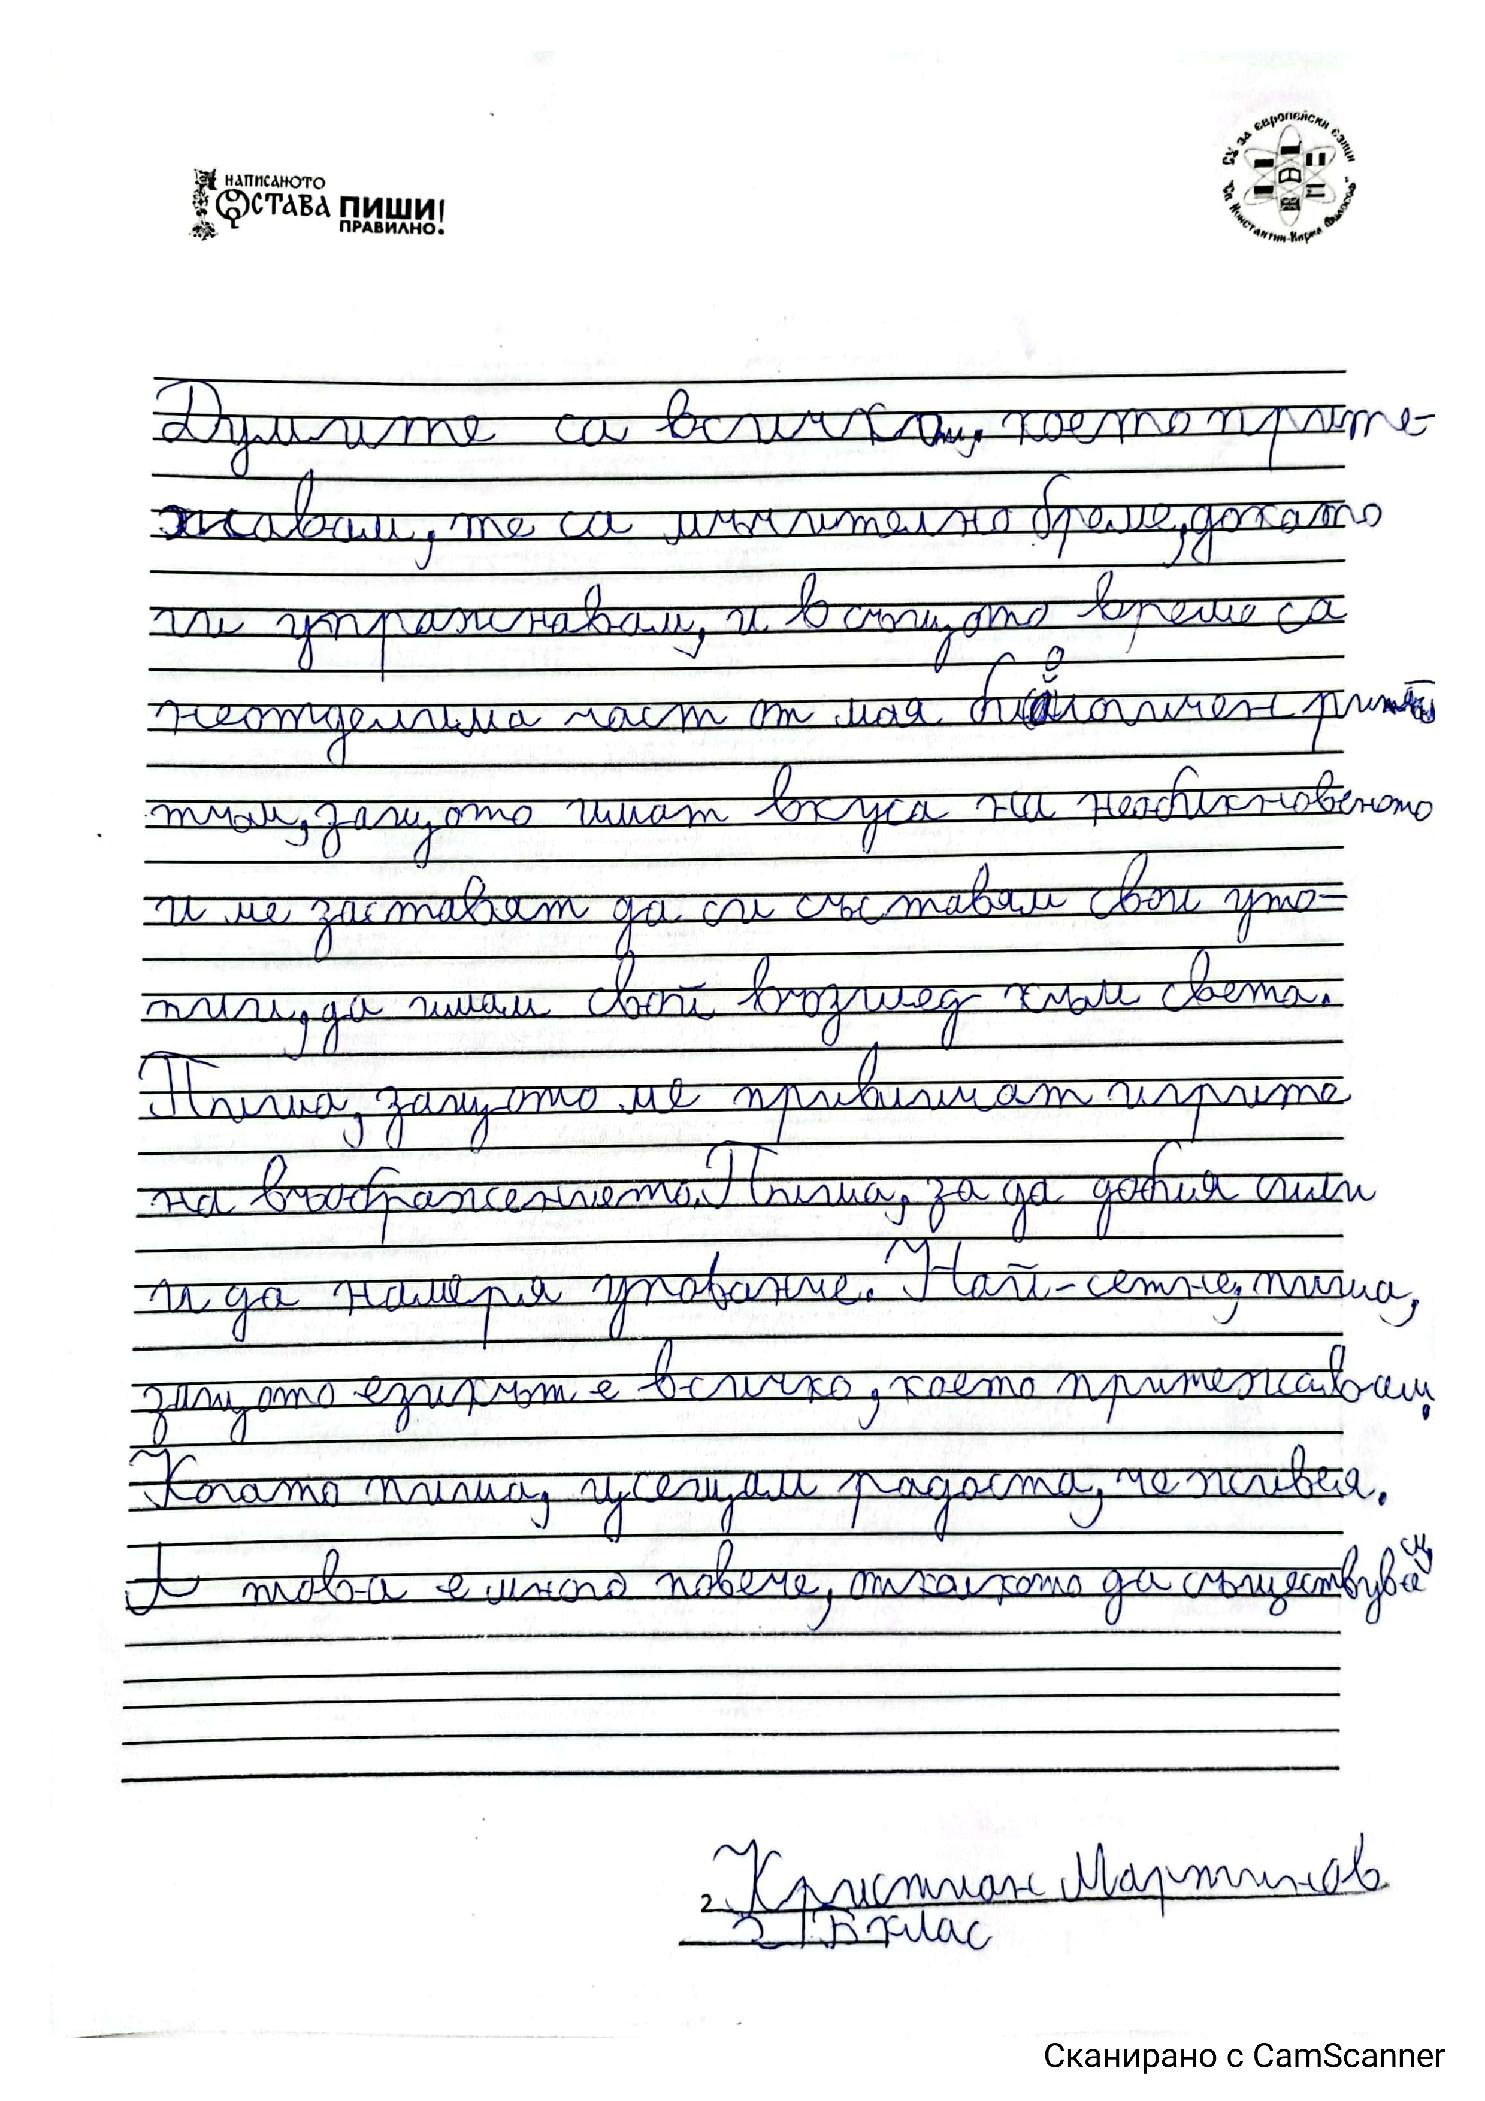 НАПИСАНОТО
ОСТАВА ПИШИ
ПРАВИЛНО!
СУ за европейски езици
"Св. Константин-Кирил Философ"
Думите са всичко, което прите-
жавам, те са мъчително бреме, докато
ги упражнавам, и в същото време са
неотделима част от моя биологичен
тъм, защото имат вкуса на необикновеното
и ме заставят да си съставям свои уто-
пии, да имам свой възглед към света.
Пиша, защото ме привличат игрите
на въображението. Пиша, за да добия сили
и да намеря упование. Най-сетне, пиша,
защото езикът е всичко, което притежавам.
Когато пиша, усещам радостта, че живея.
А това е много повече, отколкото да съществуваш
Кристиан Мартинов
2 Б клас
Сканирано с CamScanner